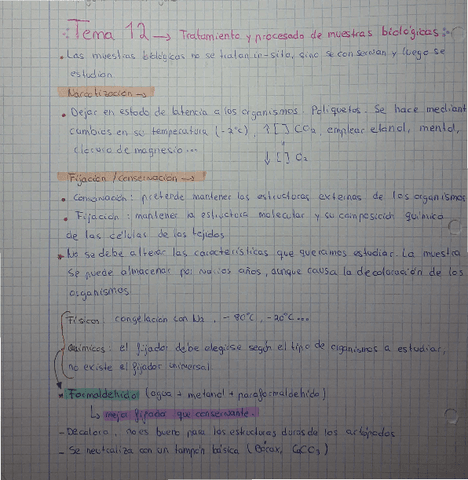 Tema 12 → Tratamiento y procesado de muestras biológicas:
• Las muestras biológicas no se tratan in-situ, sino se conservan y luego se
estudian.
Narcotización →
• Dejar en estado de latencia a los organismos. Poliquetos. Se hace mediant
cambios en su temperatura (-2°C), ↑[] CO₂, emplear etanol, mentol,
cloruro de magnesio... ↓[] O₂
Fijación / Conservación →
• Conservación: pretende mantener las estructuras externas de los organismos
• Fijación: mantener la estructura molecular y su composición química
de las células de los tejidos
• No se debe alterar las características que queramos estudiar. La muestra
se puede almacenar por varios años, aunque causa la decoloración de los
organismos.
Físicos: congelación con N₂, -80°C, -20°C...
Químicos: el fijador debe elegirse según el tipo de organismos a estudiar,
no existe el fijador universal.
• Formaldehído (agua + metanol + paraformaldehído)
↳ mejor fijador que conservante.
- Decolora, no es bueno para las estructuras duras de los artrópodos
- Se neutraliza con un tampón básico (Bórax, CaCO₃)